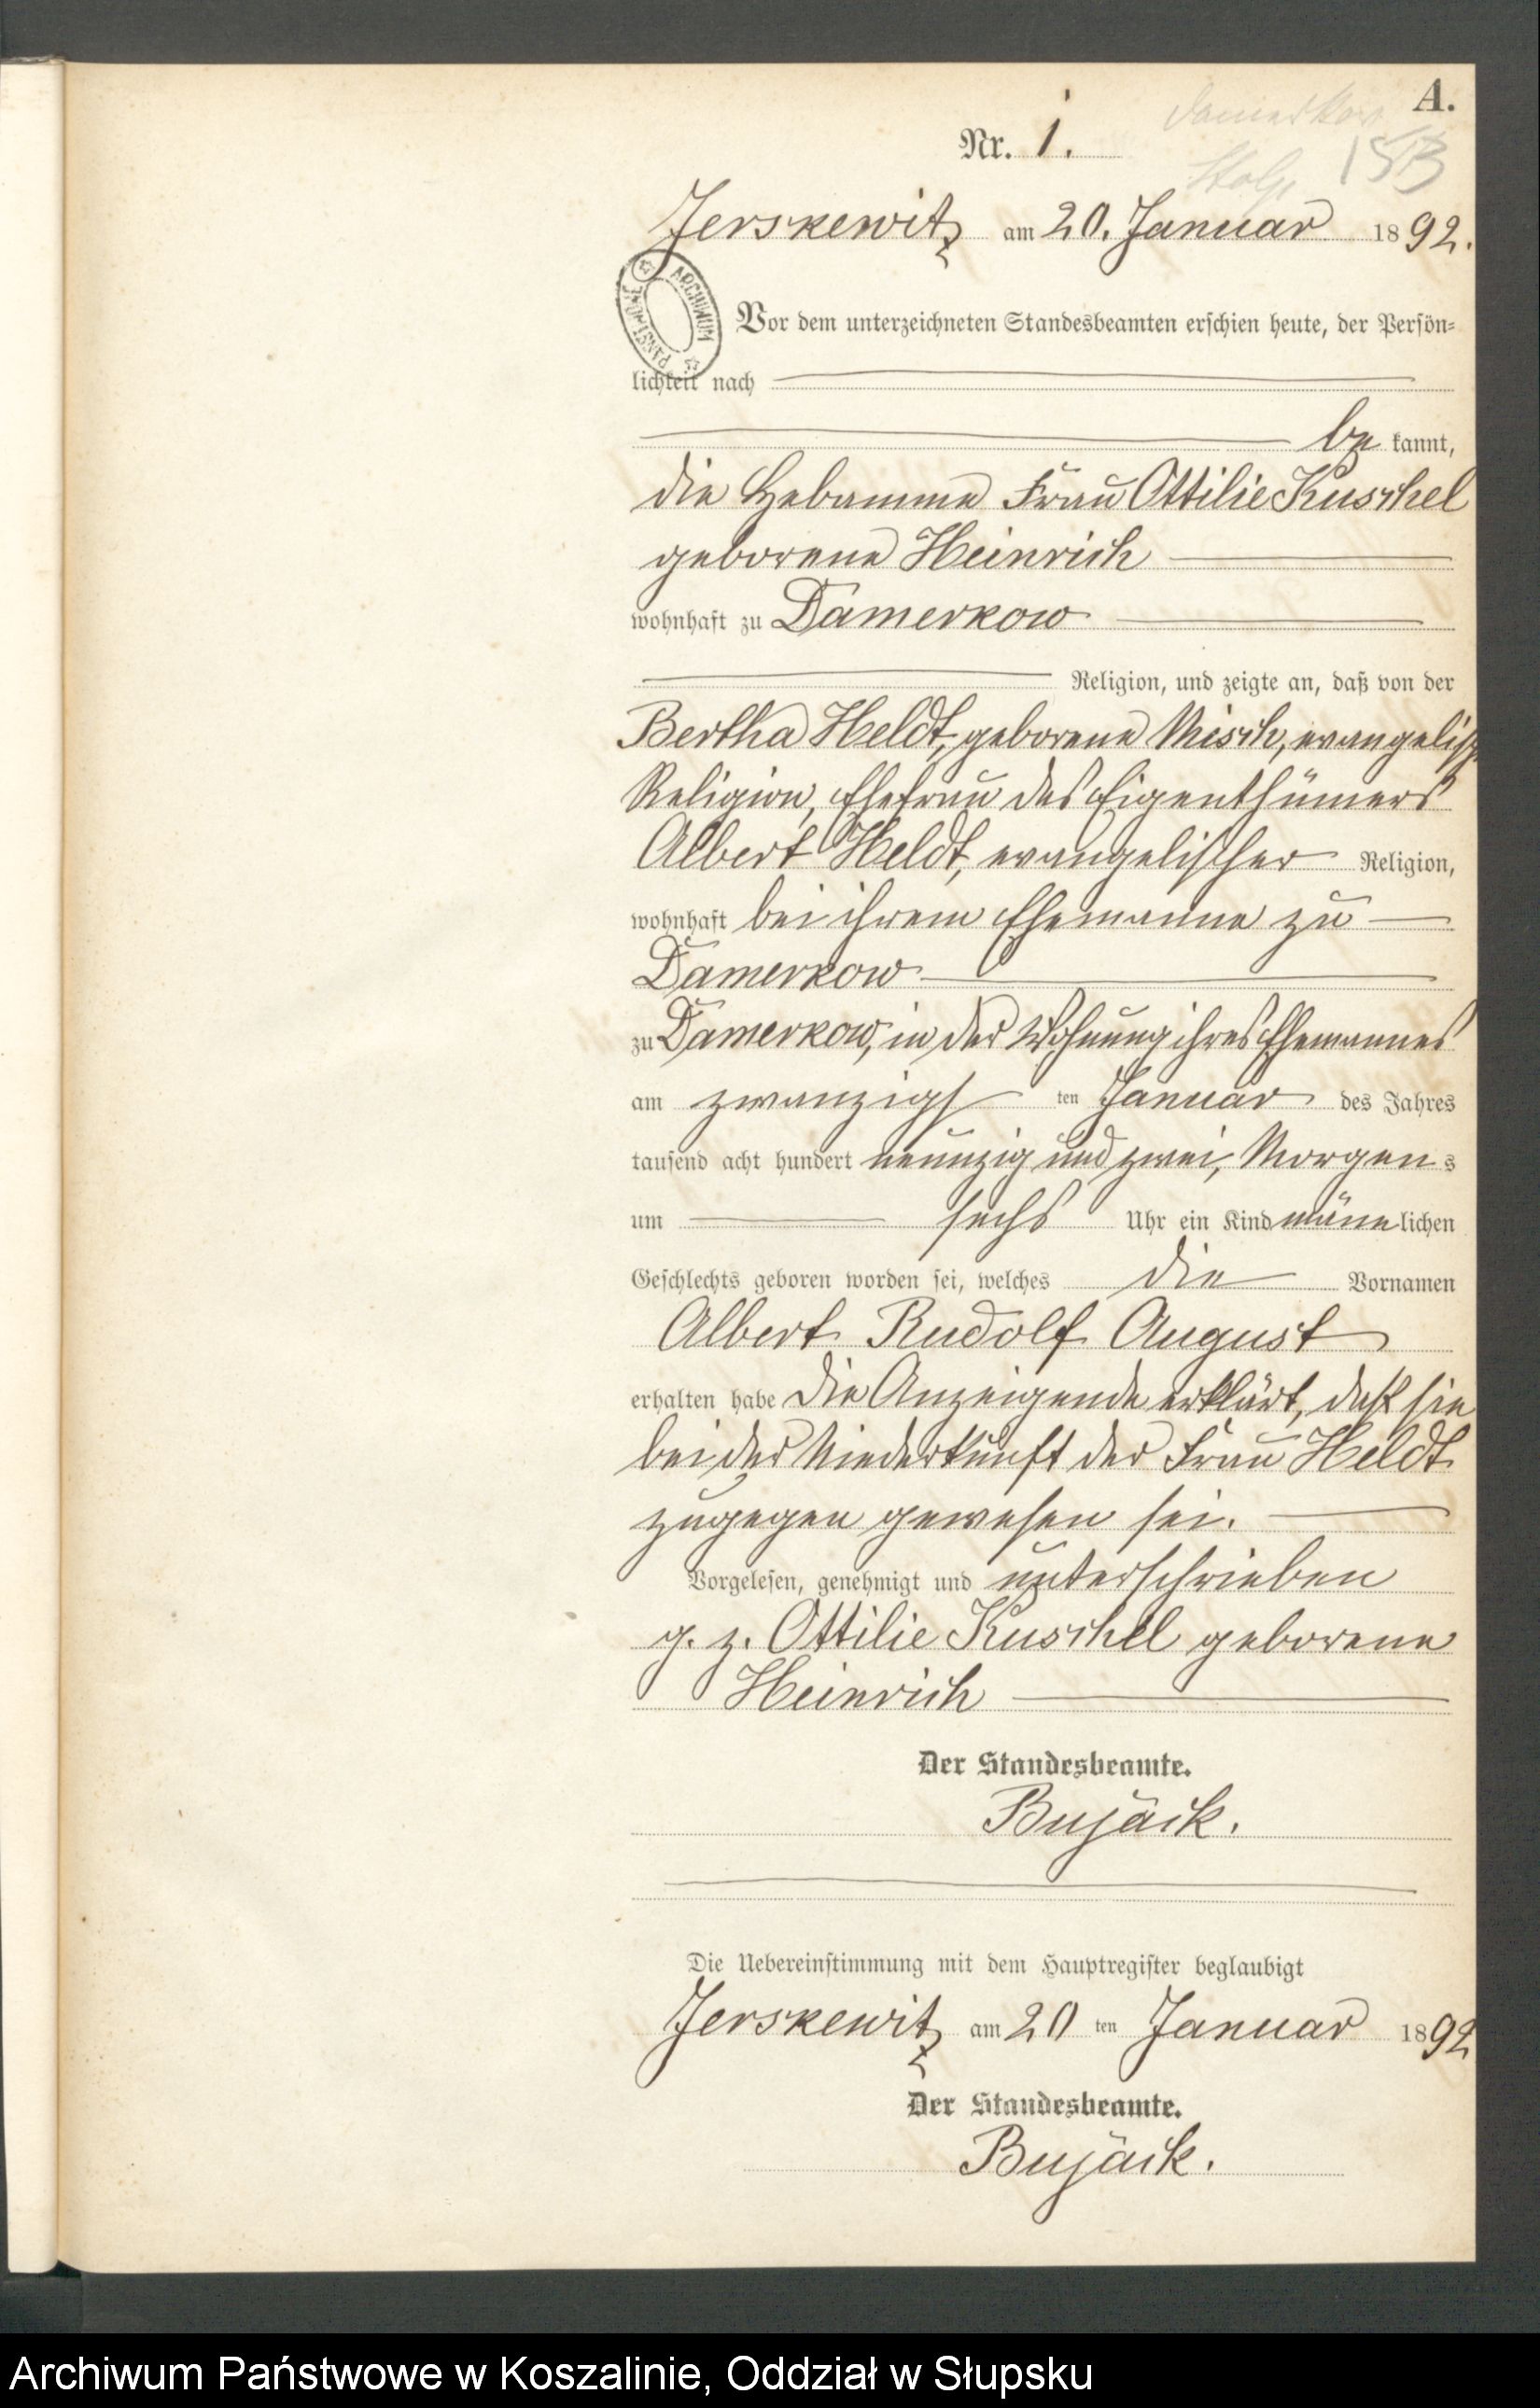 A.
Damerkow
Nr. 1.
Stolp 15B
Jerskewitz am 20. Januar 1892.
ARCHIWUM PAŃSTWOWE
Vor dem unterzeichneten Standesbeamten erschien heute, der Persön=
lichkeit nach
be kannt,
die Hebamme Frau Ottilie Kuschel
geborene Heinrich
wohnhaft zu Damerkow
Religion, und zeigte an, daß von der
Bertha Heldt, geborene Misch, evangelisch
Religion, Ehefrau des Eigenthümers
Albert Heldt, evangelischer Religion,
wohnhaft bei ihrem Ehemanne zu
Damerkow
zu Damerkow, in der Wohnung ihres Ehemannes
am zwanzigs ten Januar des Jahres
tausend acht hundert neunzig und zwei, Morgen s
um sechs Uhr ein Kind männ lichen
Geschlechts geboren worden sei, welches die Vornamen
Albert Rudolf August
erhalten habe die Anzeigende erklärt, daß sie
bei der Niederkunft der Frau Heldt
zugegen gewesen sei.
Vorgelesen, genehmigt und unterschrieben
g. z. Ottilie Kuschel geborene
Heinrich
Der Standesbeamte.
Bujack.
Die Uebereinstimmung mit dem Hauptregister beglaubigt
Jerskewitz am 20 ten Januar 1892
Der Standesbeamte.
Bujack.
Archiwum Państwowe w Koszalinie, Oddział w Słupsku